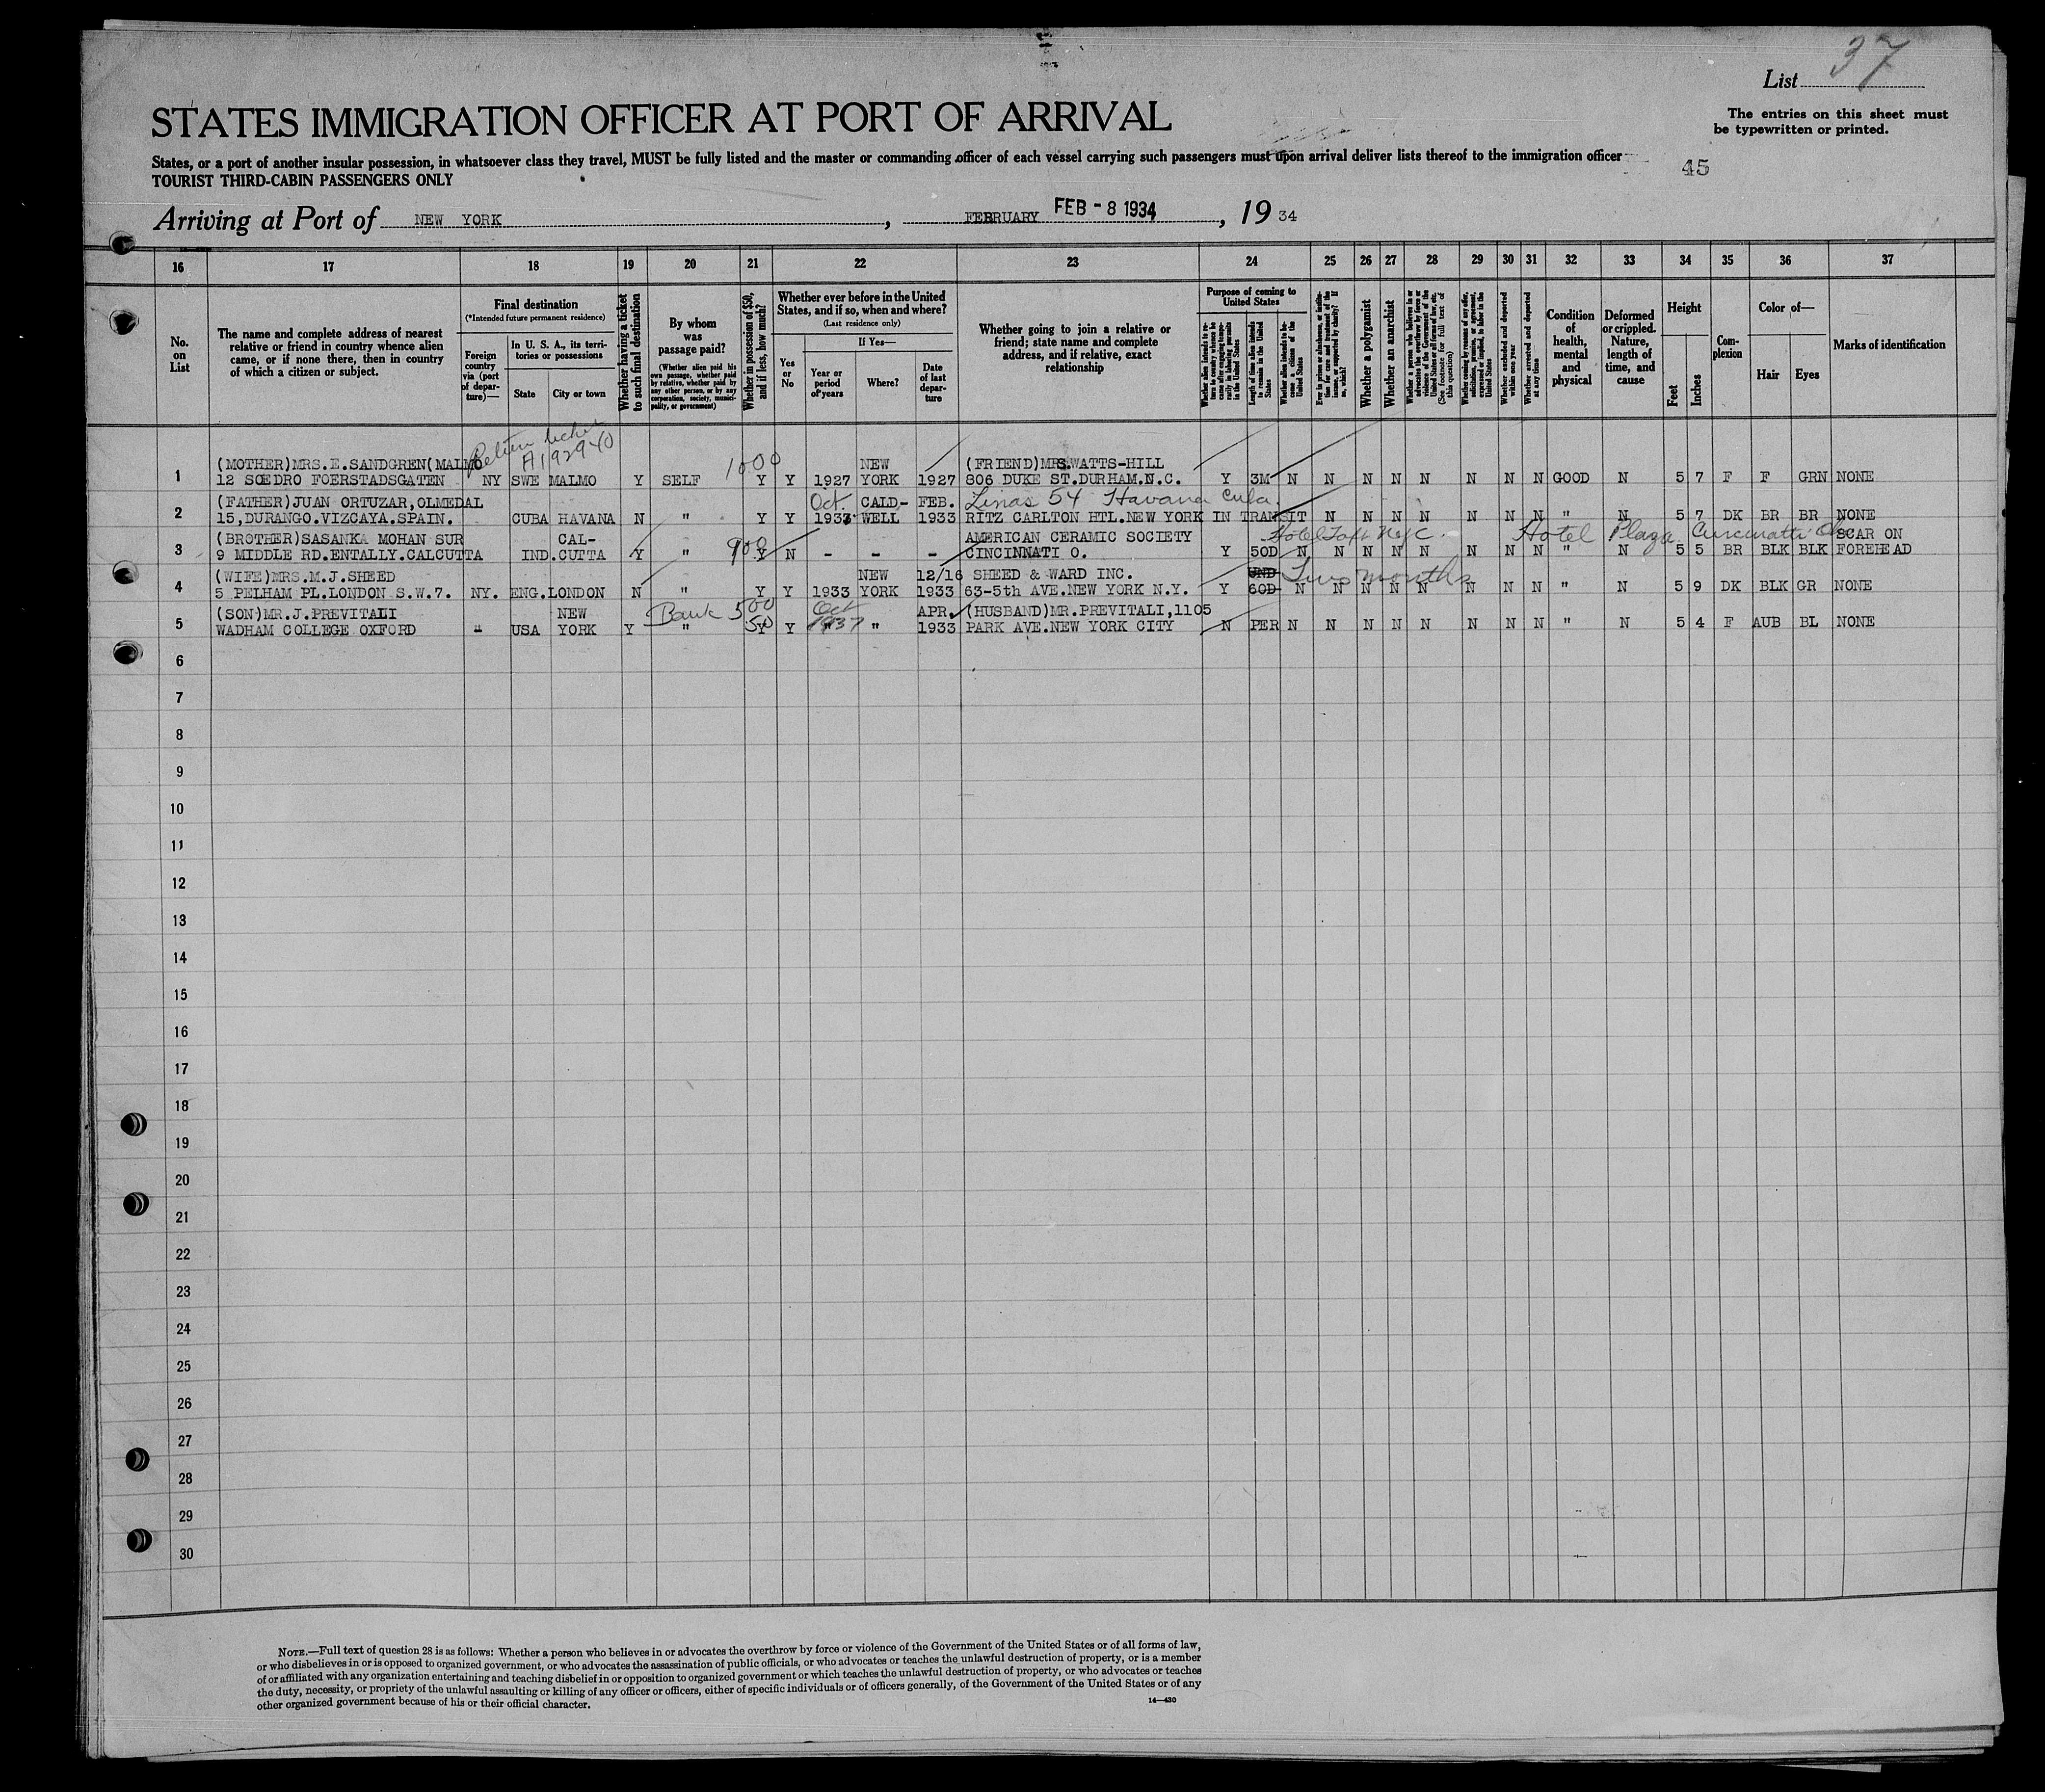 List 37
STATES IMMIGRATION OFFICER AT PORT OF ARRIVAL
The entries on this sheet must
be typewritten or printed.
States, or a port of another insular possession, in whatsoever class they travel, MUST be fully listed and the master or commanding officer of each vessel carrying such passengers must upon arrival deliver lists thereof to the immigration officer
45
TOURIST THIRD-CABIN PASSENGERS ONLY
Arriving at Port of NEW YORK, FEBRUARY FEB - 8 1934, 19 34
16 17 18 19 20 21 22 23 24 25 26 27 28 29 30 31 32 33 34 35 36 37
No. on List
The name and complete address of nearest relative or friend in country whence alien came, or if none there, then in country of which a citizen or subject.
Final destination
(*Intended future permanent residence)
Foreign country via (port of departure)—
In U. S. A., its territories or possessions
State
City or town
Whether having a ticket to such final destination
By whom was passage paid?
(Whether alien paid his own passage, whether paid by relative, whether paid by any other person, or by any corporation, society, municipality, or government)
Whether in possession of $50, and if less, how much?
Whether ever before in the United States, and if so, when and where?
(Last residence only)
Yes or No
If Yes—
Year or period of years
Where?
Date of last departure
Whether going to join a relative or friend; state name and complete address, and if relative, exact relationship
Purpose of coming to United States
Whether alien intends to return to country whence he came after engaging temporarily in laboring pursuits in the United States
Length of time alien intends to remain in the United States
Whether alien intends to become a citizen of the United States
Ever in prison or almshouse, or institution for care and treatment of the insane, or supported by charity? If so, which?
Whether a polygamist
Whether an anarchist
Whether a person who believes in or advocates the overthrow by force or violence of the Government of the United States or all forms of law, etc. (See footnote for full text of this question)
Whether coming by reasons of any offer, solicitation, promise, or agreement, expressed or implied, to labor in the United States
Whether excluded and deported within one year
Whether arrested and deported at any time
Condition of health, mental and physical
Deformed or crippled. Nature, length of time, and cause
Height
Feet
Inches
Complexion
Color of—
Hair
Eyes
Marks of identification
Return ticket
A192940
(MOTHER)MRS.E.SANDGREN(MALMO 1000 NEW (FRIEND)MRS.WATTS-HILL
1 12 SOEDRO FOERSTADSGATEN NY SWE MALMO Y SELF Y Y 1927 YORK 1927 806 DUKE ST.DURHAM.N.C. Y 3M N N N N N N N N GOOD N 5 7 F F GRN NONE
(FATHER)JUAN ORTUZAR,OLMEDAL Oct. CALD- FEB. Linas 54 Havana Cuba.
2 15,DURANGO.VIZCAYA.SPAIN. CUBA HAVANA N " Y Y 1933 WELL 1933 RITZ CARLTON HTL.NEW YORK IN TRANSIT N N N N N N N " N 5 7 DK BR BR NONE
(BROTHER)SASANKA MOHAN SUR CAL- 900 AMERICAN CERAMIC SOCIETY Hotel Taft NYC. Hotel Plaza Cincinatti O. SCAR ON
3 9 MIDDLE RD.ENTALLY.CALCUTTA IND. CUTTA Y " Y N - - - CINCINNATI O. Y 50D N N N N N N N N " N 5 5 BR BLK BLK FOREHEAD
(WIFE)MRS.M.J.SHEED NEW 12/16 SHEED & WARD INC. UND Two months
4 5 PELHAM PL.LONDON S.W.7. NY. ENG. LONDON N " Y Y 1933 YORK 1933 63-5th AVE.NEW YORK N.Y. Y 60D N N N N N N N N " N 5 9 DK BLK GR NONE
(SON)MR.J.PREVITALI NEW Bank 500 Oct APR. (HUSBAND)MR.PREVITALI,1105
5 WADHAM COLLEGE OXFORD " USA YORK Y " 50 Y Y " 1933 PARK AVE.NEW YORK CITY N PER N N N N N N N N " N 5 4 F AUB BL NONE
6
7
8
9
10
11
12
13
14
15
16
17
18
19
20
21
22
23
24
25
26
27
28
29
30
NOTE.—Full text of question 28 is as follows: Whether a person who believes in or advocates the overthrow by force or violence of the Government of the United States or of all forms of law,
or who disbelieves in or is opposed to organized government, or who advocates the assassination of public officials, or who advocates or teaches the unlawful destruction of property, or is a member
of or affiliated with any organization entertaining and teaching disbelief in or opposition to organized government or which teaches the unlawful destruction of property, or who advocates or teaches
the duty, necessity, or propriety of the unlawful assaulting or killing of any officer or officers, either of specific individuals or of officers generally, of the Government of the United States or of any
other organized government because of his or their official character.
14—430